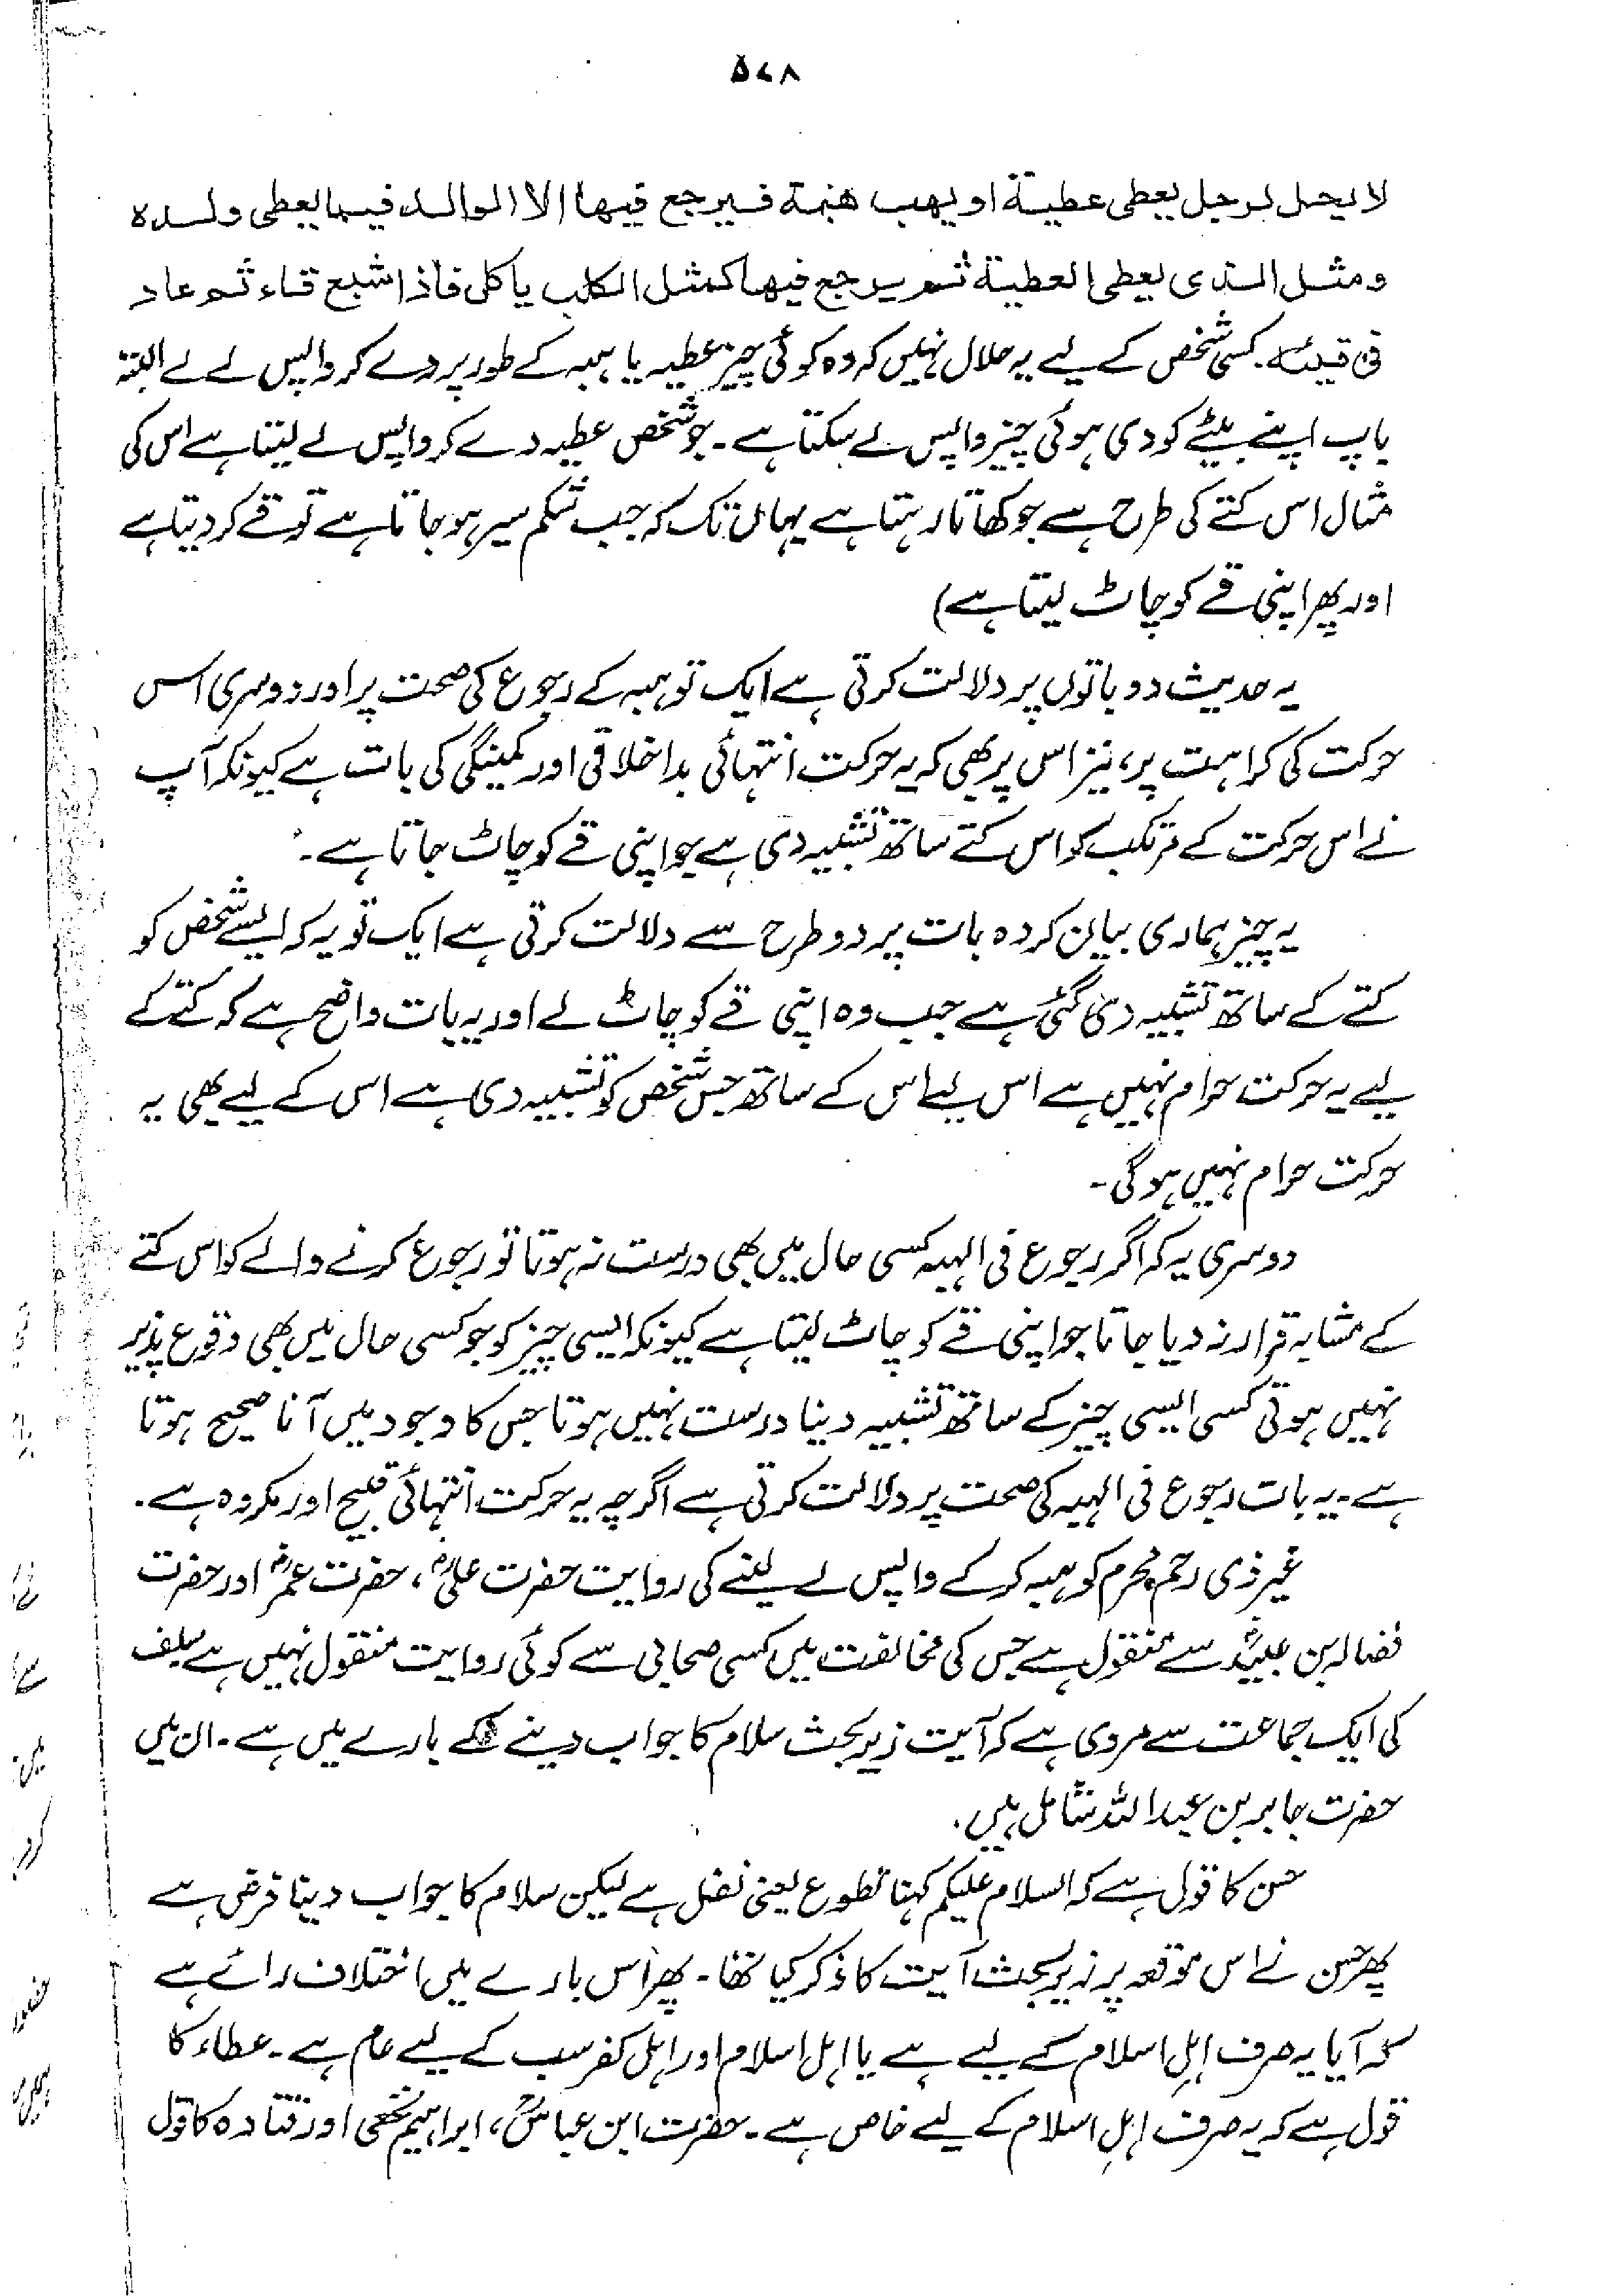 ۵۷۸
لا يحل لرجل يعطى عطية او يهب هبة فيرجع فيها الا الوالد فيما يعطى ولده
ومثل الذى يعطى العطية ثم يرجع فيها كمثل الكلب يا كل فاذا شبع قاء ثم عاد
فى قيئه۔ کسی شخص کے لیے یہ حلال نہیں کہ وہ کوئی چیز عطیہ یا ہبہ کے طور پر دے کر واپس لے لے البتہ
باپ اپنے بیٹے کو دی ہوئی چیز واپس لے سکتا ہے۔ جو شخص عطیہ دے کر واپس لے لیتا ہے اس کی
مثال اس کتے کی طرح ہے جو کھاتا رہتا ہے یہاں تک کہ جب شکم سیر ہو جاتا ہے تو قے کر دیتا ہے
اور پھر اپنی قے کو چاٹ لیتا ہے)
یہ حدیث دو باتوں پر دلالت کرتی ہے ایک تو ہبہ کے رجوع کی صحت پر اور دوسری اس
حرکت کی کراہت پر، نیز اس پر بھی کہ یہ حرکت انتہائی بداخلاقی اور کمینگی کی بات ہے کیونکہ آپ
نے اس حرکت کے مرتکب کو اس کتے ساتھ تشبیہ دی ہے جو اپنی قے کو چاٹ جاتا ہے۔
یہ چیز ہماری بیان کردہ بات پر دو طرح سے دلالت کرتی ہے ایک تو یہ کہ ایسے شخص کو
کتے کے ساتھ تشبیہ دی گئی ہے جب وہ اپنی قے کو چاٹ لے اور یہ بات واضح ہے کہ کتے کے
لیے یہ حرکت حرام نہیں ہے اس لیے اس کے ساتھ جس شخص کو تشبیہ دی ہے اس کے لیے بھی یہ
حرکت حرام نہیں ہو گی۔
دوسری یہ کہ اگر رجوع فی الہبہ کسی حال میں بھی درست نہ ہوتا تو رجوع کرنے والے کو اس کتے
کے مشابہ قرار نہ دیا جاتا جو اپنی قے کو چاٹ لیتا ہے کیونکہ ایسی چیز کو جو کسی حال میں بھی وقوع پذیر
نہیں ہوتی کسی ایسی چیز کے ساتھ تشبیہ دینا درست نہیں ہوتا جس کا وجود میں آنا صحیح ہوتا
ہے۔ یہ بات رجوع فی الہبہ کی صحت پر دلالت کرتی ہے اگرچہ یہ حرکت انتہائی قبیح اور مکروہ ہے۔
غیر ذی رحم محرم کو ہبہ کر کے واپس لے لینے کی روایت حضرت علیؓ، حضرت عمرؓ اور حضرت
فضالہ بن عبیدؓ سے منقول ہے جس کی مخالفت میں کسی صحابی سے کوئی روایت منقول نہیں ہے سلف
کی ایک جماعت سے مروی ہے کہ آیت زیر بحث سلام کا جواب دینے کے بارے میں ہے۔ ان میں
حضرت جابر بن عبداللہ شامل ہیں۔
حسن کا قول ہے کہ السلام علیکم کہنا تطوع یعنی نفل ہے لیکن سلام کا جواب دینا فرض ہے
پھر حسن نے اس موقعہ پر زیر بحث آیت کا ذکر کیا تھا۔ پھر اس بارے میں اختلاف رائے ہے
کہ آیا یہ صرف اہل اسلام کے لیے ہے یا اہل اسلام اور اہل کفر سب کے لیے عام ہے۔ عطاء کا
قول ہے کہ یہ صرف اہل اسلام کے لیے خاص ہے۔ حضرت ابن عباسؓ، ابراہیم نخعی اور قتادہ کا قول